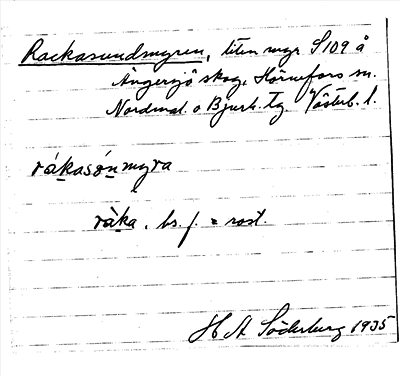 Rackasundmyren, liten myr S 109 å
Ängersjö skog, Hörnefors sn.
Nordmal. o Bjurh. tg. Västerb. l.
rákasó̱nmyra
ràka. bs. f. = rost.
H A Söderberg 1935